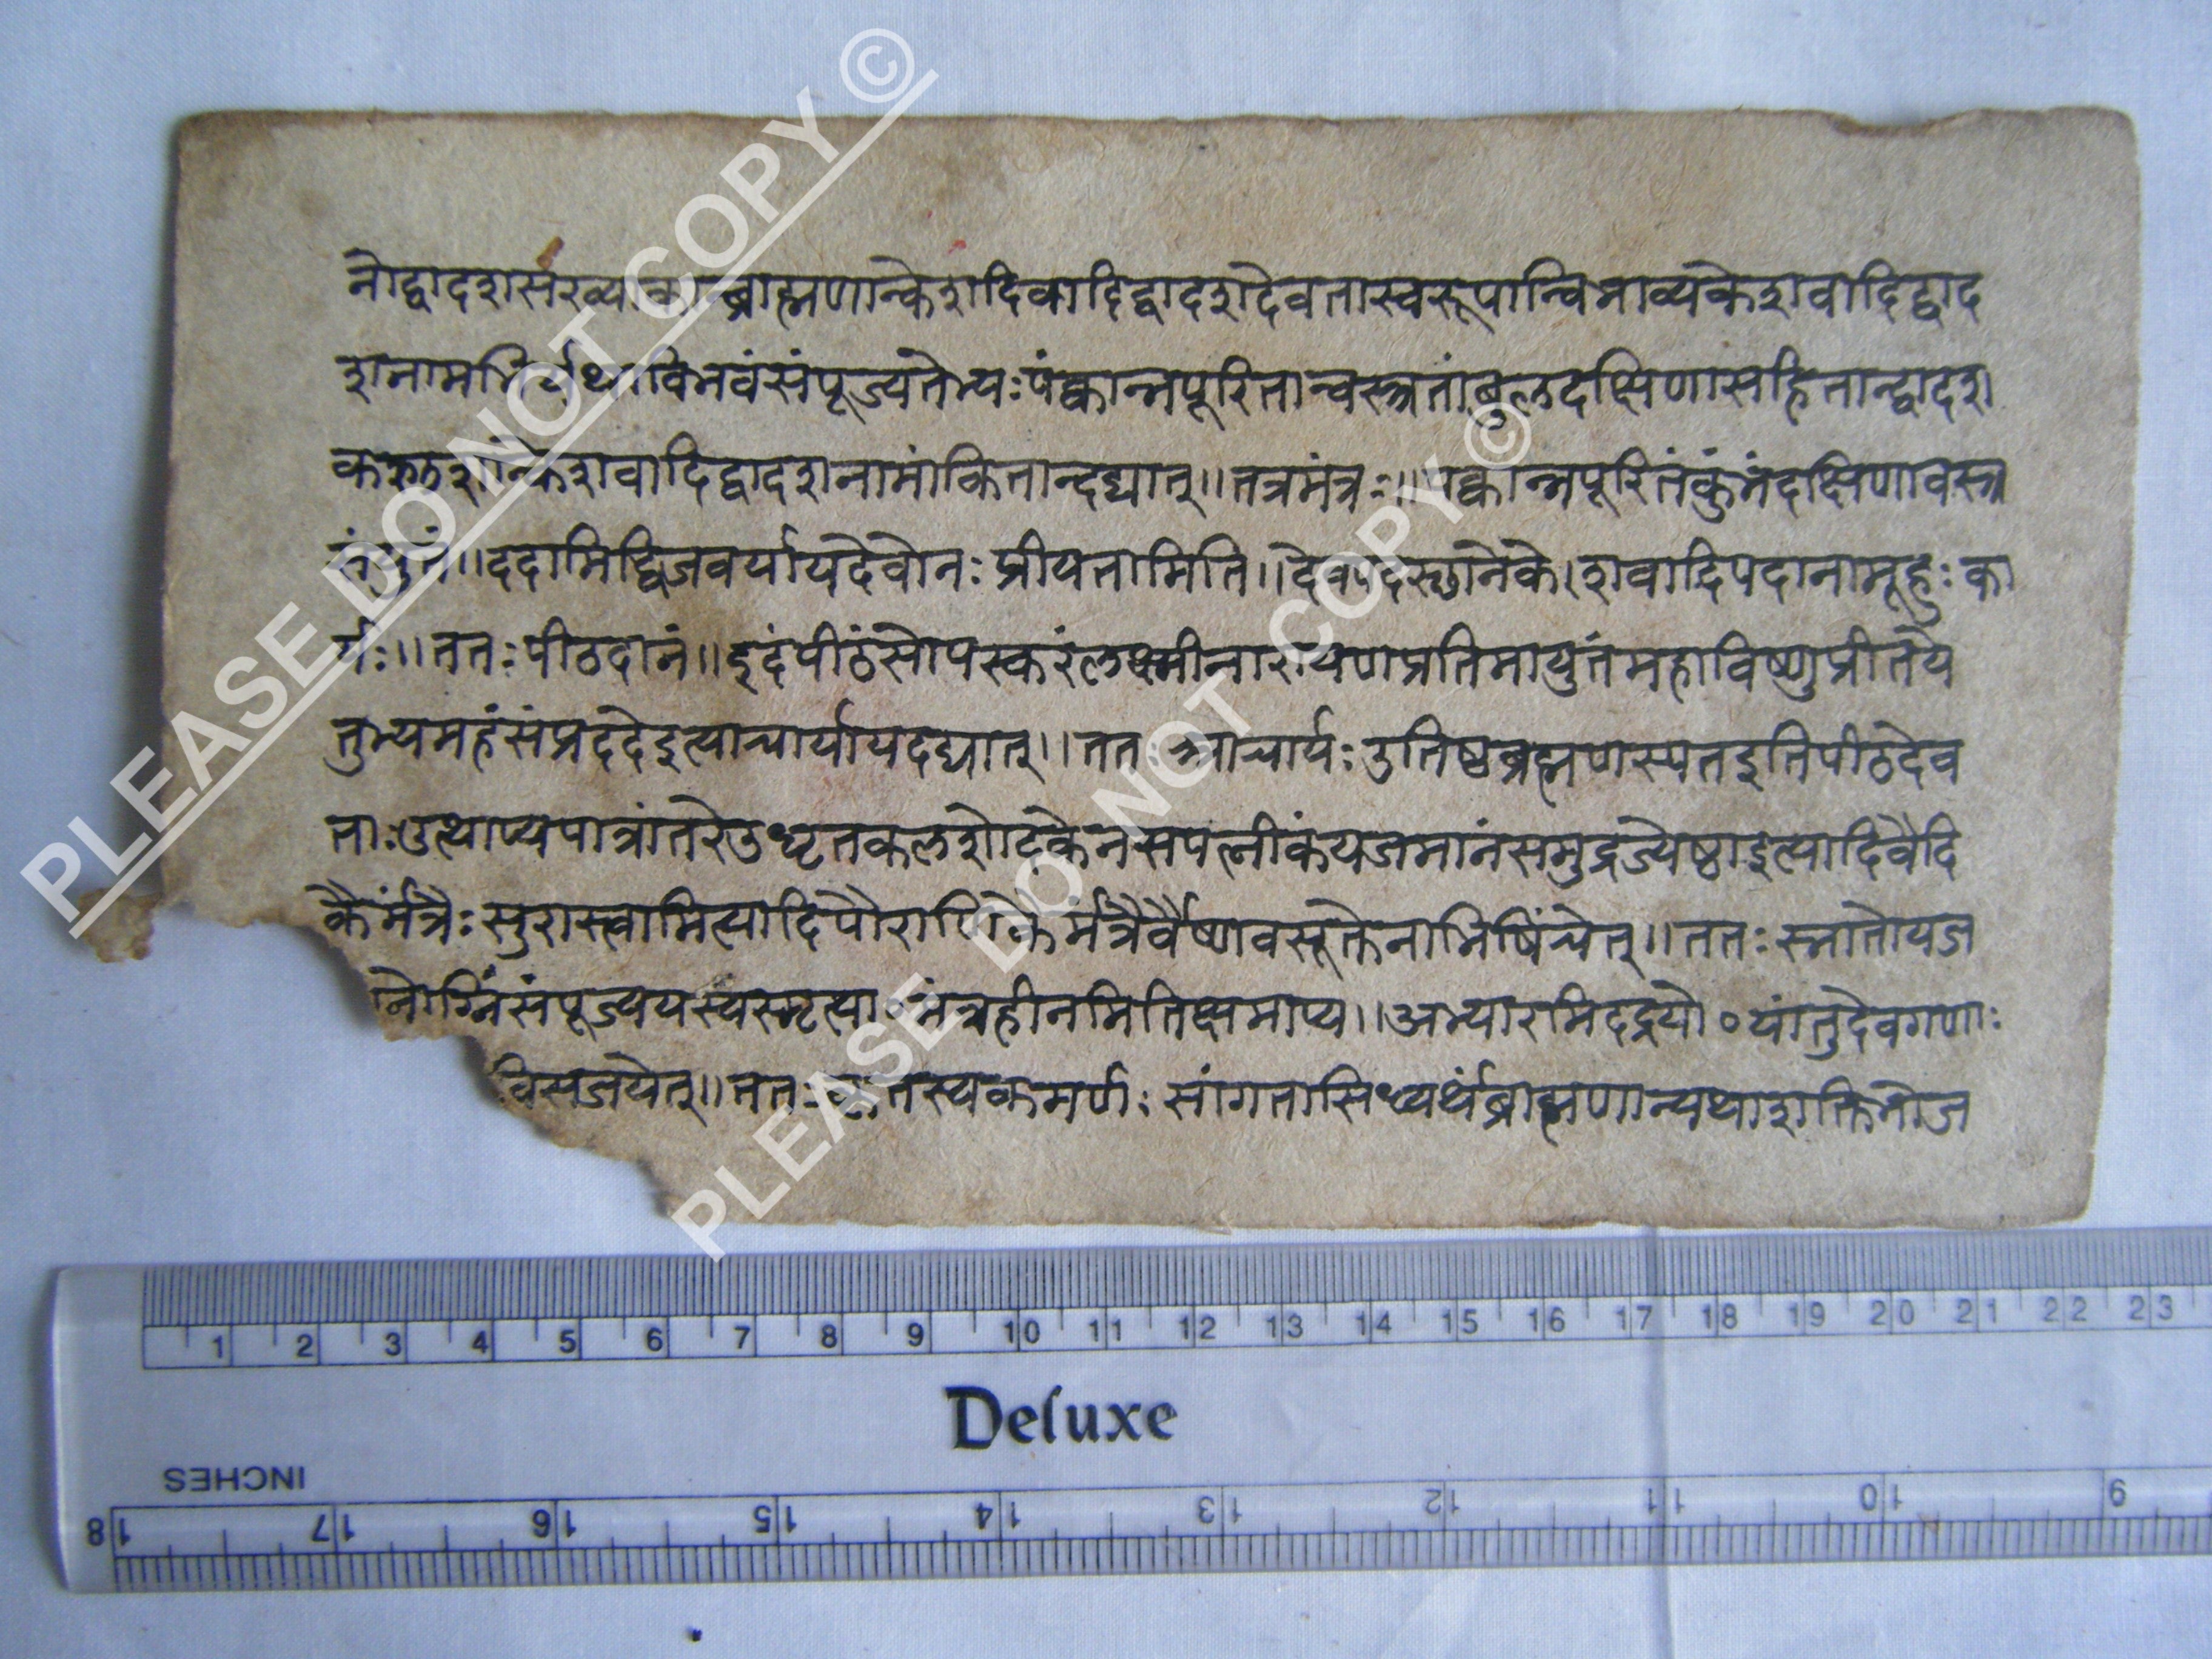 नोद्वादशसंख्याकान्ब्राह्मणान्केशदिवादिद्वादशदेवतास्वरूपान्विभाव्यकेशवादिद्वाद
शनामभिर्यथाविभवंसंपूज्यतेभ्यःपंक्वान्नपूरितान्वस्त्रतांबुलदक्षिणासहितान्द्वादश
करुलशान्केशवादिद्वादशनामांकितान्दद्यात्॥तत्रमंत्रः॥पक्वान्नपूरितंकुंभंदक्षिणावस्त्र
संयुतं॥ददामिद्विजवर्यायदेवोनःप्रीयतामिति॥देवपदस्छानेके।शवादिपदानामूहःका
र्यः॥ततःपीठदानं॥इदंपीठंसोपस्करंलक्ष्मीनारायणप्रतिमायुतंमहाविष्णुप्रीतये
तुभ्यमहंसंप्रददेइत्याचार्यायदद्यात्॥ततःआचार्यःउतिष्ठब्रह्मणस्पतइतिपीठदेव
ताःउत्थाप्यपात्रांतरेउधृतकलशोदकेनसपत्नीकंयजमानंसमुद्रज्येष्ठाइत्यादिवैदि
कैर्मंत्रैःसुरास्त्वामित्यादिपौराणिकैर्मंत्रैर्वैष्णवसूक्तेनाभिषिंचेत्॥ततःस्नातोयज
नोग्निंसंपूज्ययस्यस्मृत्या॰मंत्रहीनमितिक्षमाप्य॥अभ्यारमिदद्रयो॰यांतुदेवगणाः
विसर्जयेत्॥ततःकृतस्यकर्मणःसांगतासिध्यर्थंब्राह्मणान्यथाशक्तिभोज
PLEASE DO NOT COPY ©
PLEASE DO NOT COPY ©
1 2 3 4 5 6 7 8 9 10 11 12 13 14 15 16 17 18 19 20 21 22 23
Deluxe
INCHES
18 17 16 15 14 13 12 11 10 9